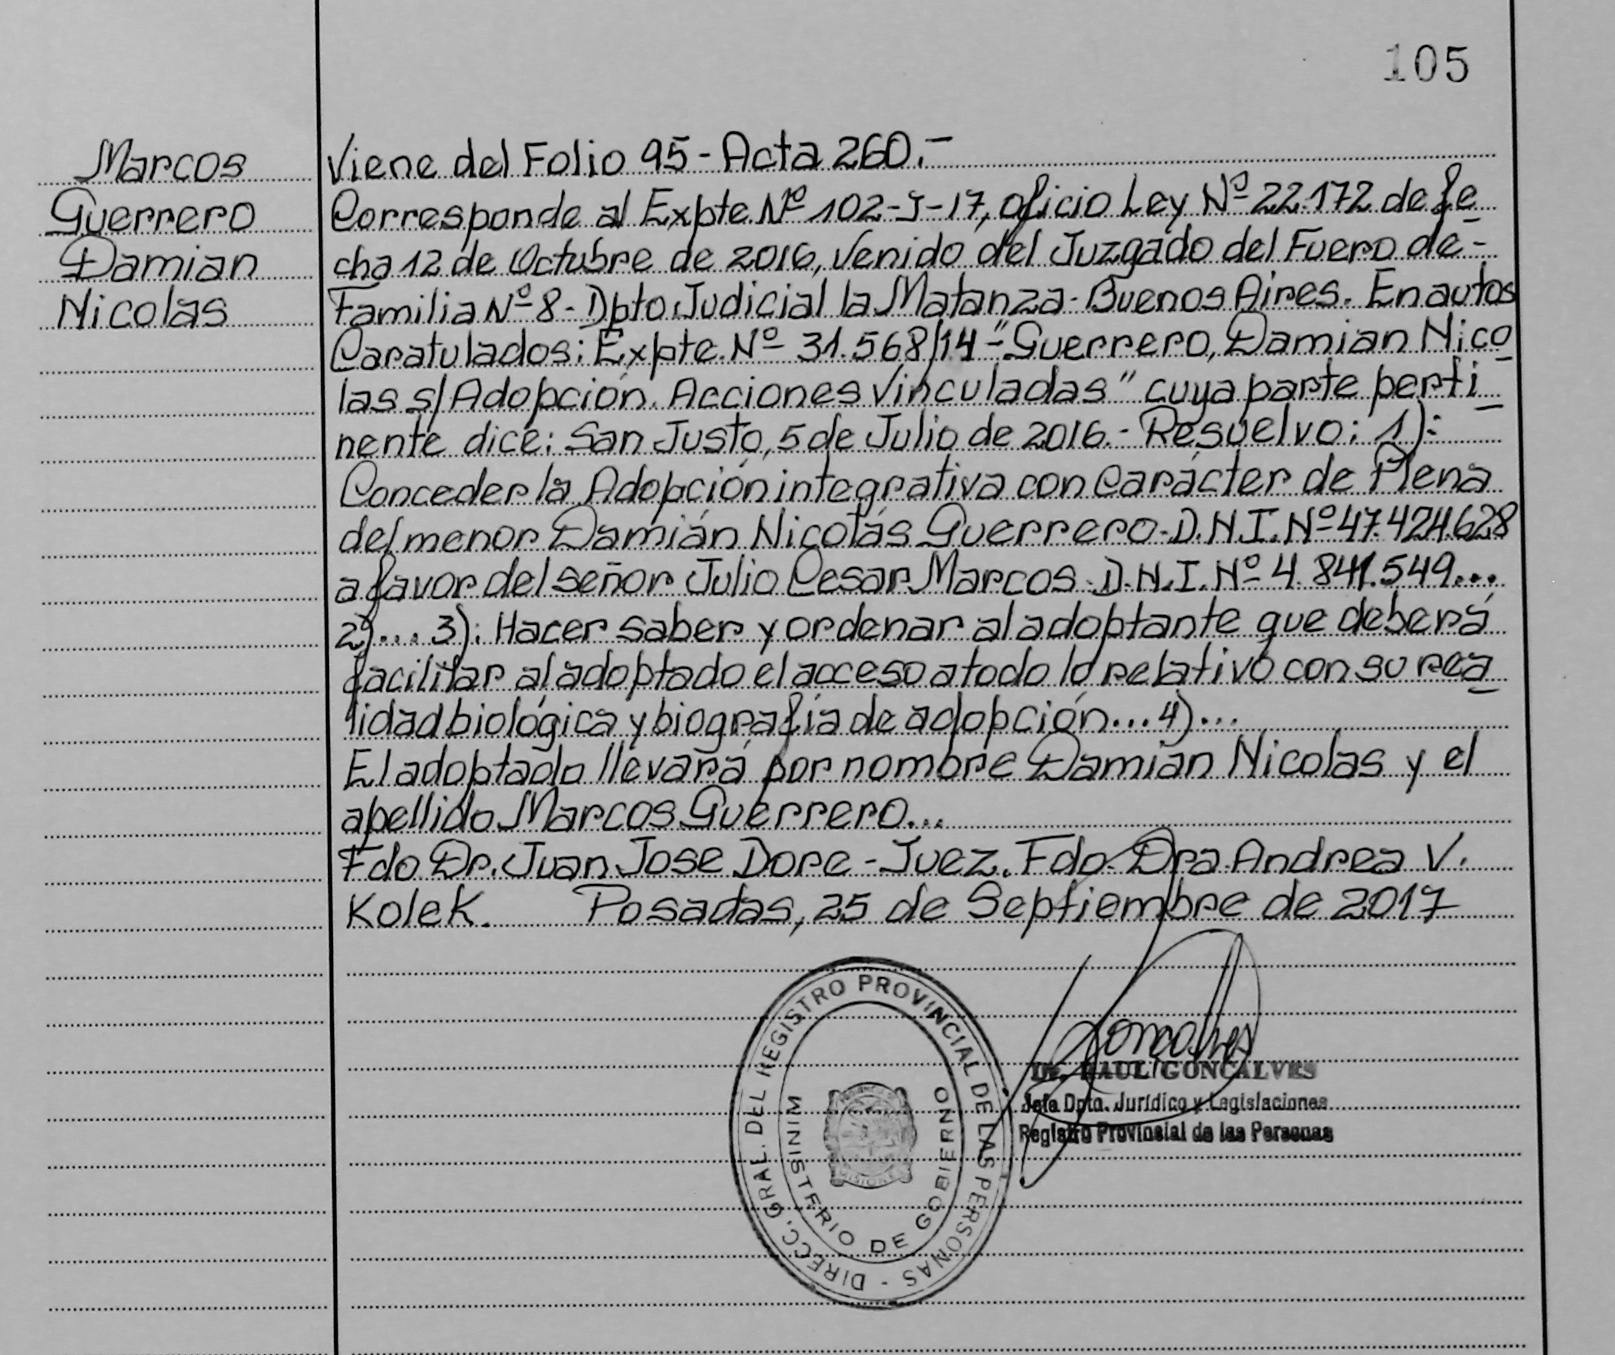 105
Marcos
Guerrero
Damian
Nicolas
Viene del Folio 95 - Acta 260.-
Corresponde al Expte. Nº 102-J-17, oficio Ley Nº 22.172 de fe
cha 12 de Octubre de 2016, Venido del Juzgado del Fuero de-
Familia Nº 8 - Dpto Judicial la Matanza - Buenos Aires. En autos
Caratulados: Expte. Nº 31.568/14 - "Guerrero, Damian Nico
las s/ Adopción. Acciones Vinculadas" cuya parte perti
nente dice: San Justo, 5 de Julio de 2016.- Resuelvo: 1):
Conceder la Adopción integrativa con Carácter de Plena
del menor Damián Nicolás Guerrero - D.N.I. Nº 47.424.628
a favor del señor Julio Cesar Marcos. D.N.I. Nº 4.841.549...
2)... 3): Hacer saber y ordenar al adoptante que deberá
facilitar al adoptado el acceso a todo lo relativo con su rea
lidad biológica y biografía de adopción... 4)...
El adoptado llevará por nombre Damian Nicolas y el
apellido Marcos Guerrero...
Fdo Dr. Juan Jose Dore - Juez. Fdo. Dra. Andrea V.
Kolek. Posadas, 25 de Septiembre de 2017
DIRECC. GRAL. DEL REGISTRO PROVINCIAL DE LAS PERSONAS -
MINISTERIO DE GOBIERNO
MISIONES
Goncalves
Dr. RAUL GONCALVES
Jefe Dpto. Jurídico y Legislaciones
Registro Provincial de las Personas